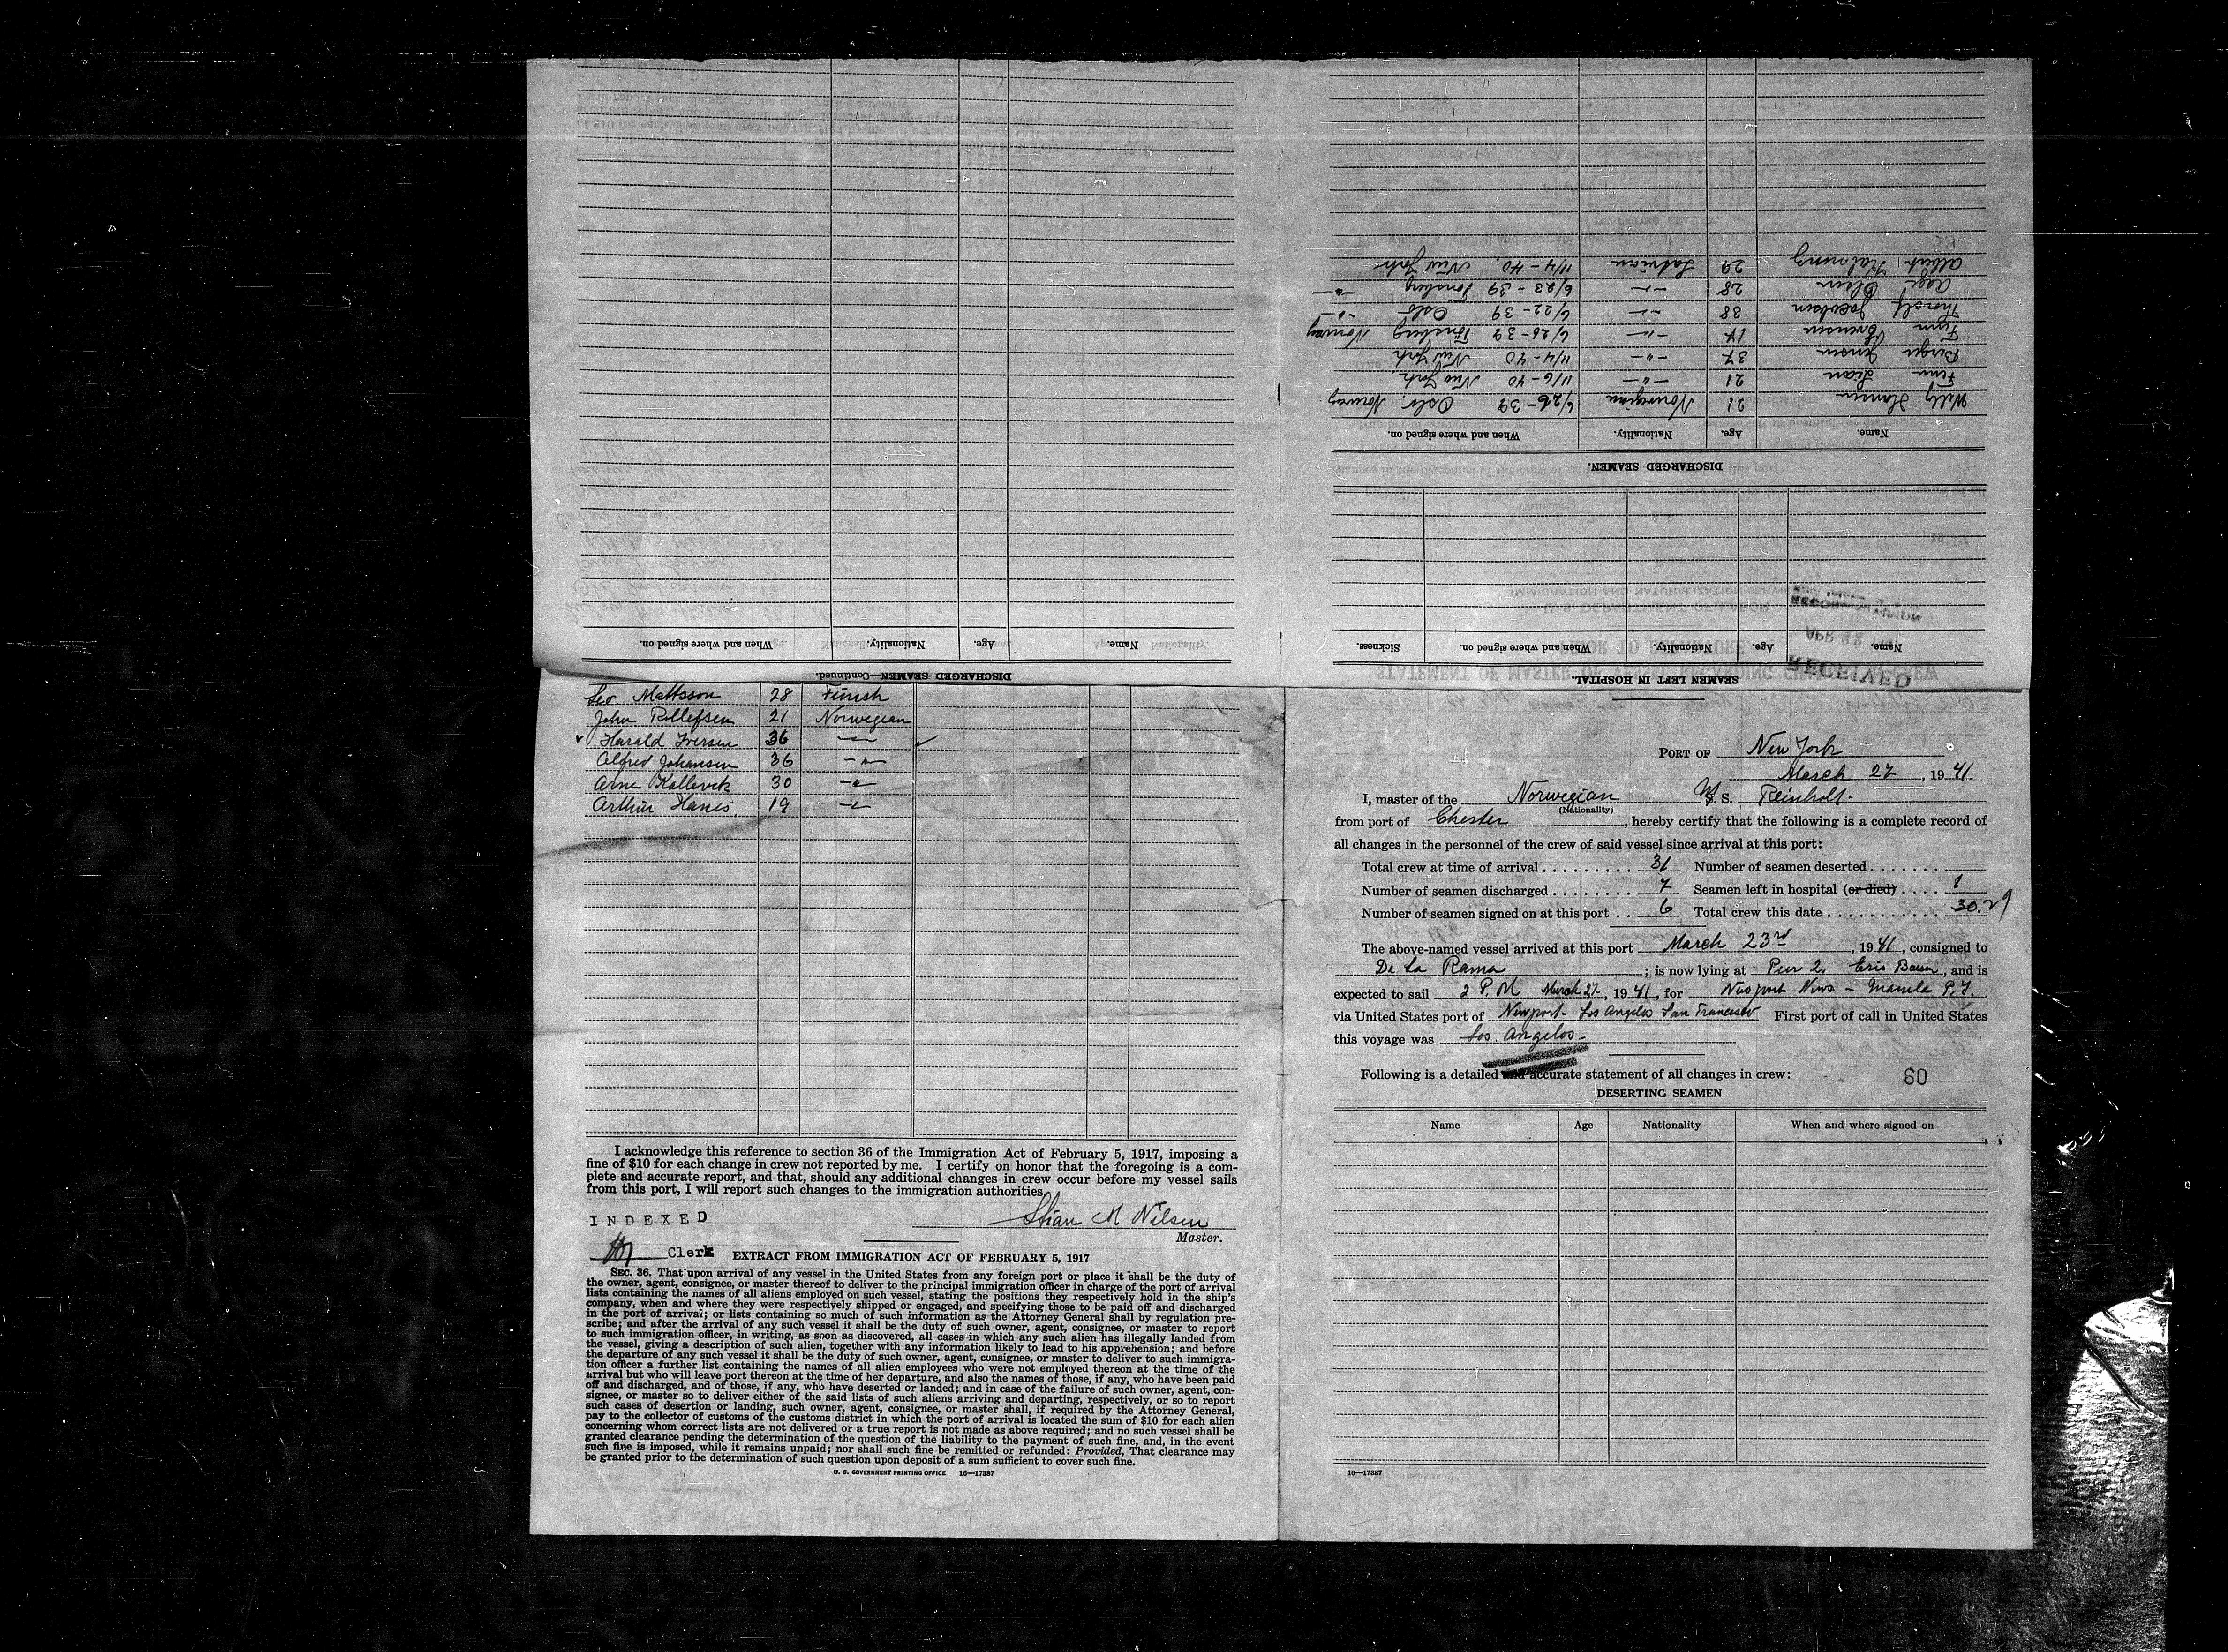 PORT OF New York
March 27, 1941
I, master of the Norwegian M.S. Reinholt
(Nationality)
from port of Chester, hereby certify that the following is a complete record of
all changes in the personnel of the crew of said vessel since arrival at this port:
Total crew at time of arrival . . . . . . . . . 31 Number of seamen deserted . . . . . . .
Number of seamen discharged . . . . . . . . 7 Seamen left in hospital (or died) . . . . 1
Number of seamen signed on at this port . . 6 Total crew this date . . . . . . . . . . . 30. 29
The above-named vessel arrived at this port March 23rd, 1941, consigned to
De La Rama; is now lying at Pier 2 Erie Basin, and is
expected to sail 2 P.M March 27, 1941, for Newport News - Manila P.I.
via United States port of Newport - Los Angelos San Francisco First port of call in United States
this voyage was Los. Angelos -
Following is a detailed and accurate statement of all changes in crew:
60
DESERTING SEAMEN
Name Age Nationality When and where signed on
16—17387
SEAMEN LEFT IN HOSPITAL.
Name. Age. Nationality. When and where signed on. Sickness.
RECEIVED
APR 22
DISCHARGED SEAMEN.
Name. Age. Nationality. When and where signed on.
Willy Hansen 21 Norwegian 6/26-39 Oslo, Norway
Finn Lian 21 -"- 11/6-40 New York
Birger Jensen 37 -"- 11/4-40 New York
Finn Evensen 17 -"- 6/26-39 Tönsberg Norway
Thorolf Jacobsen 38 -"- 6/22-39 Oslo -"-
Aage Olsen 28 -"- 6/23-39 Tonsberg -"-
Albert 29 Latvian 11/4-40, New York
DISCHARGED SEAMEN—Continued.
Name. Age. Nationality. When and where signed on.
Leo Mattsson 28 Finish
John Rollefsen 21 Norwegian
Harald Iversen 36 -"-
Alfred Johansen 36 -"-
Arne Kallevik 30 -"-
Arthur Hanes 19 -"-
I acknowledge this reference to section 36 of the Immigration Act of February 5, 1917, imposing a
fine of $10 for each change in crew not reported by me. I certify on honor that the foregoing is a com-
plete and accurate report, and that, should any additional changes in crew occur before my vessel sails
from this port, I will report such changes to the immigration authorities.
INDEXED
Stian M Nilsen
Master.
Clerk
EXTRACT FROM IMMIGRATION ACT OF FEBRUARY 5, 1917
SEC. 36. That upon arrival of any vessel in the United States from any foreign port or place it shall be the duty of
the owner, agent, consignee, or master thereof to deliver to the principal immigration officer in charge of the port of arrival
lists containing the names of all aliens employed on such vessel, stating the positions they respectively hold in the ship's
company, when and where they were respectively shipped or engaged, and specifying those to be paid off and discharged
in the port of arrival; or lists containing so much of such information as the Attorney General shall by regulation pre-
scribe; and after the arrival of any such vessel it shall be the duty of such owner, agent, consignee, or master to report
to such immigration officer, in writing, as soon as discovered, all cases in which any such alien has illegally landed from
the vessel, giving a description of such alien, together with any information likely to lead to his apprehension; and before
the departure of any such vessel it shall be the duty of such owner, agent, consignee, or master to deliver to such immigra-
tion officer a further list containing the names of all alien employees who were not employed thereon at the time of the
arrival but who will leave port thereon at the time of her departure, and also the names of those, if any, who have been paid
off and discharged, and of those, if any, who have deserted or landed; and in case of the failure of such owner, agent, con-
signee, or master so to deliver either of the said lists of such aliens arriving and departing, respectively, or so to report
such cases of desertion or landing, such owner, agent, consignee, or master shall, if required by the Attorney General,
pay to the collector of customs of the customs district in which the port of arrival is located the sum of $10 for each alien
concerning whom correct lists are not delivered or a true report is not made as above required; and no such vessel shall be
granted clearance pending the determination of the question of the liability to the payment of such fine, and, in the event
such fine is imposed, while it remains unpaid; nor shall such fine be remitted or refunded: Provided, That clearance may
be granted prior to the determination of such question upon deposit of a sum sufficient to cover such fine.
U. S. GOVERNMENT PRINTING OFFICE 16—17387